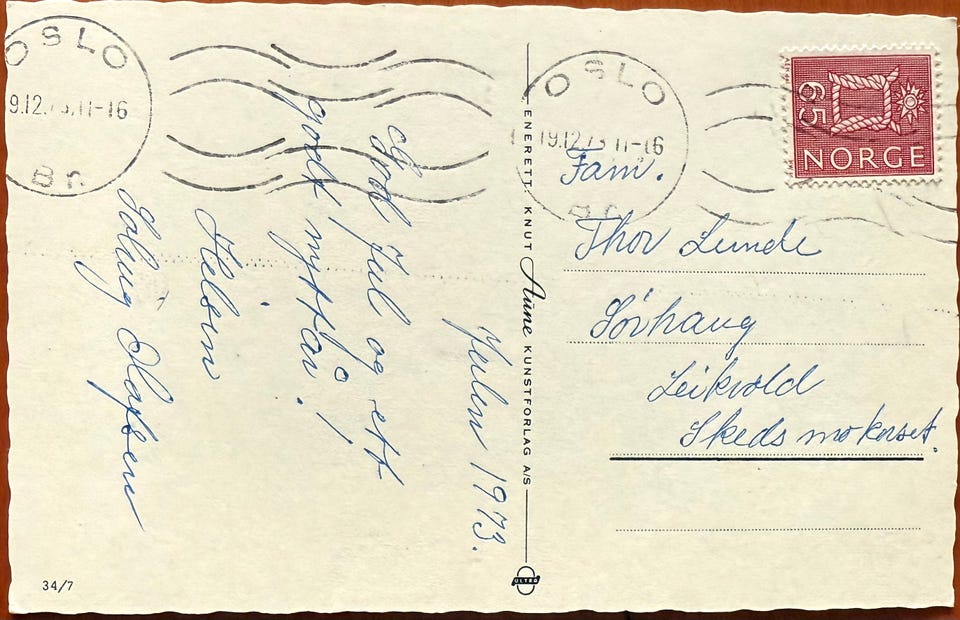 OSLO
19.12.73.11-16
Br.
OSLO
19.12.73 11-16
Br.
65
NORGE
Julen 1973.
God Jul og ett
godt nyttår!
Hilsen
Solveig Olafsen
ENERETT: KNUT Aune KUNSTFORLAG A/S
ULTRA
34/7
Fam.
Thor Lunde
Sørhaug
Leikvold
Skedsmokorset.